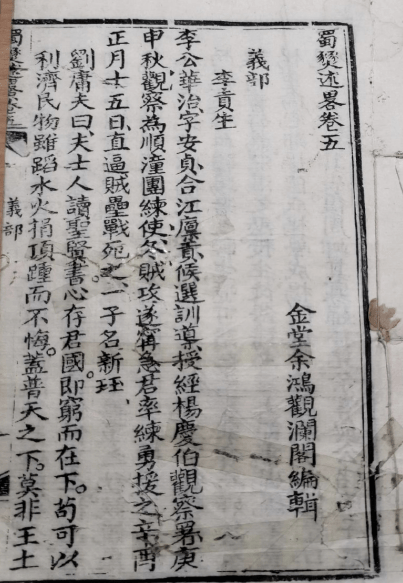 蜀燹述畧卷五
金堂余鴻觀瀾閣編輯
義部
李貢生
李公華治字安貞合江廪貢候選訓導授經楊慶伯觀察署庚
申秋觀察為順潼團練使冬賊攻遂甯急君率練勇援之辛酉
正月十五日直逼賊壘戰死之一子名新珏
劉庸夫曰夫士人讀聖賢書心存君國即窮而在下苟可以
利濟民物雖蹈水火捐頂踵而不悔蓋普天之下莫非王土
義部